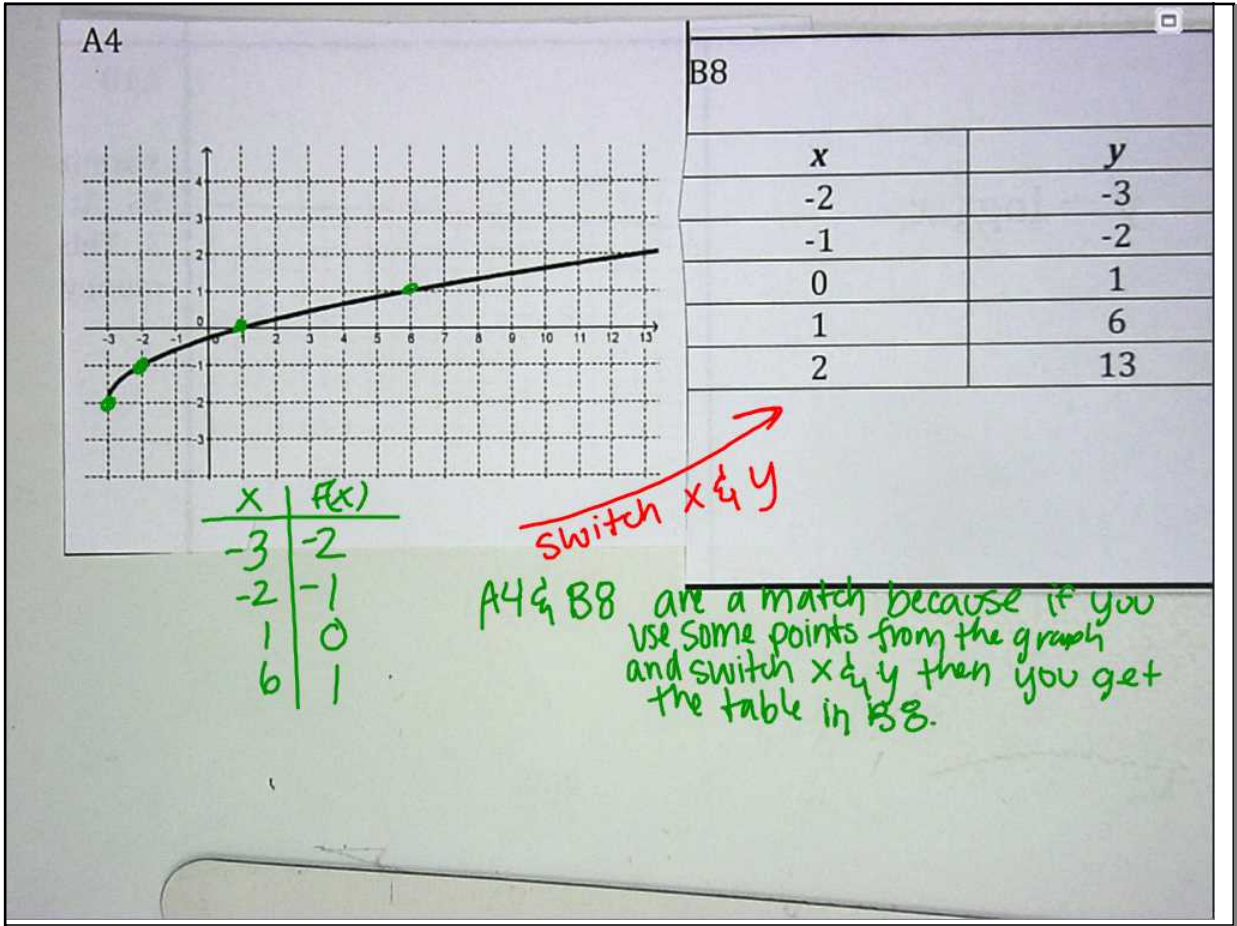 A4
4
3
2
1
0
-3 -2 -1 0 1 2 3 4 5 6 7 8 9 10 11 12 13
-1
-2
-3
B8
x y
-2 -3
-1 -2
0 1
1 6
2 13
x f(x)
-3 -2
-2 -1
1 0
6 1
switch x & y
A4 & B8 are a match because if you
use some points from the graph
and switch x & y then you get
the table in B8.